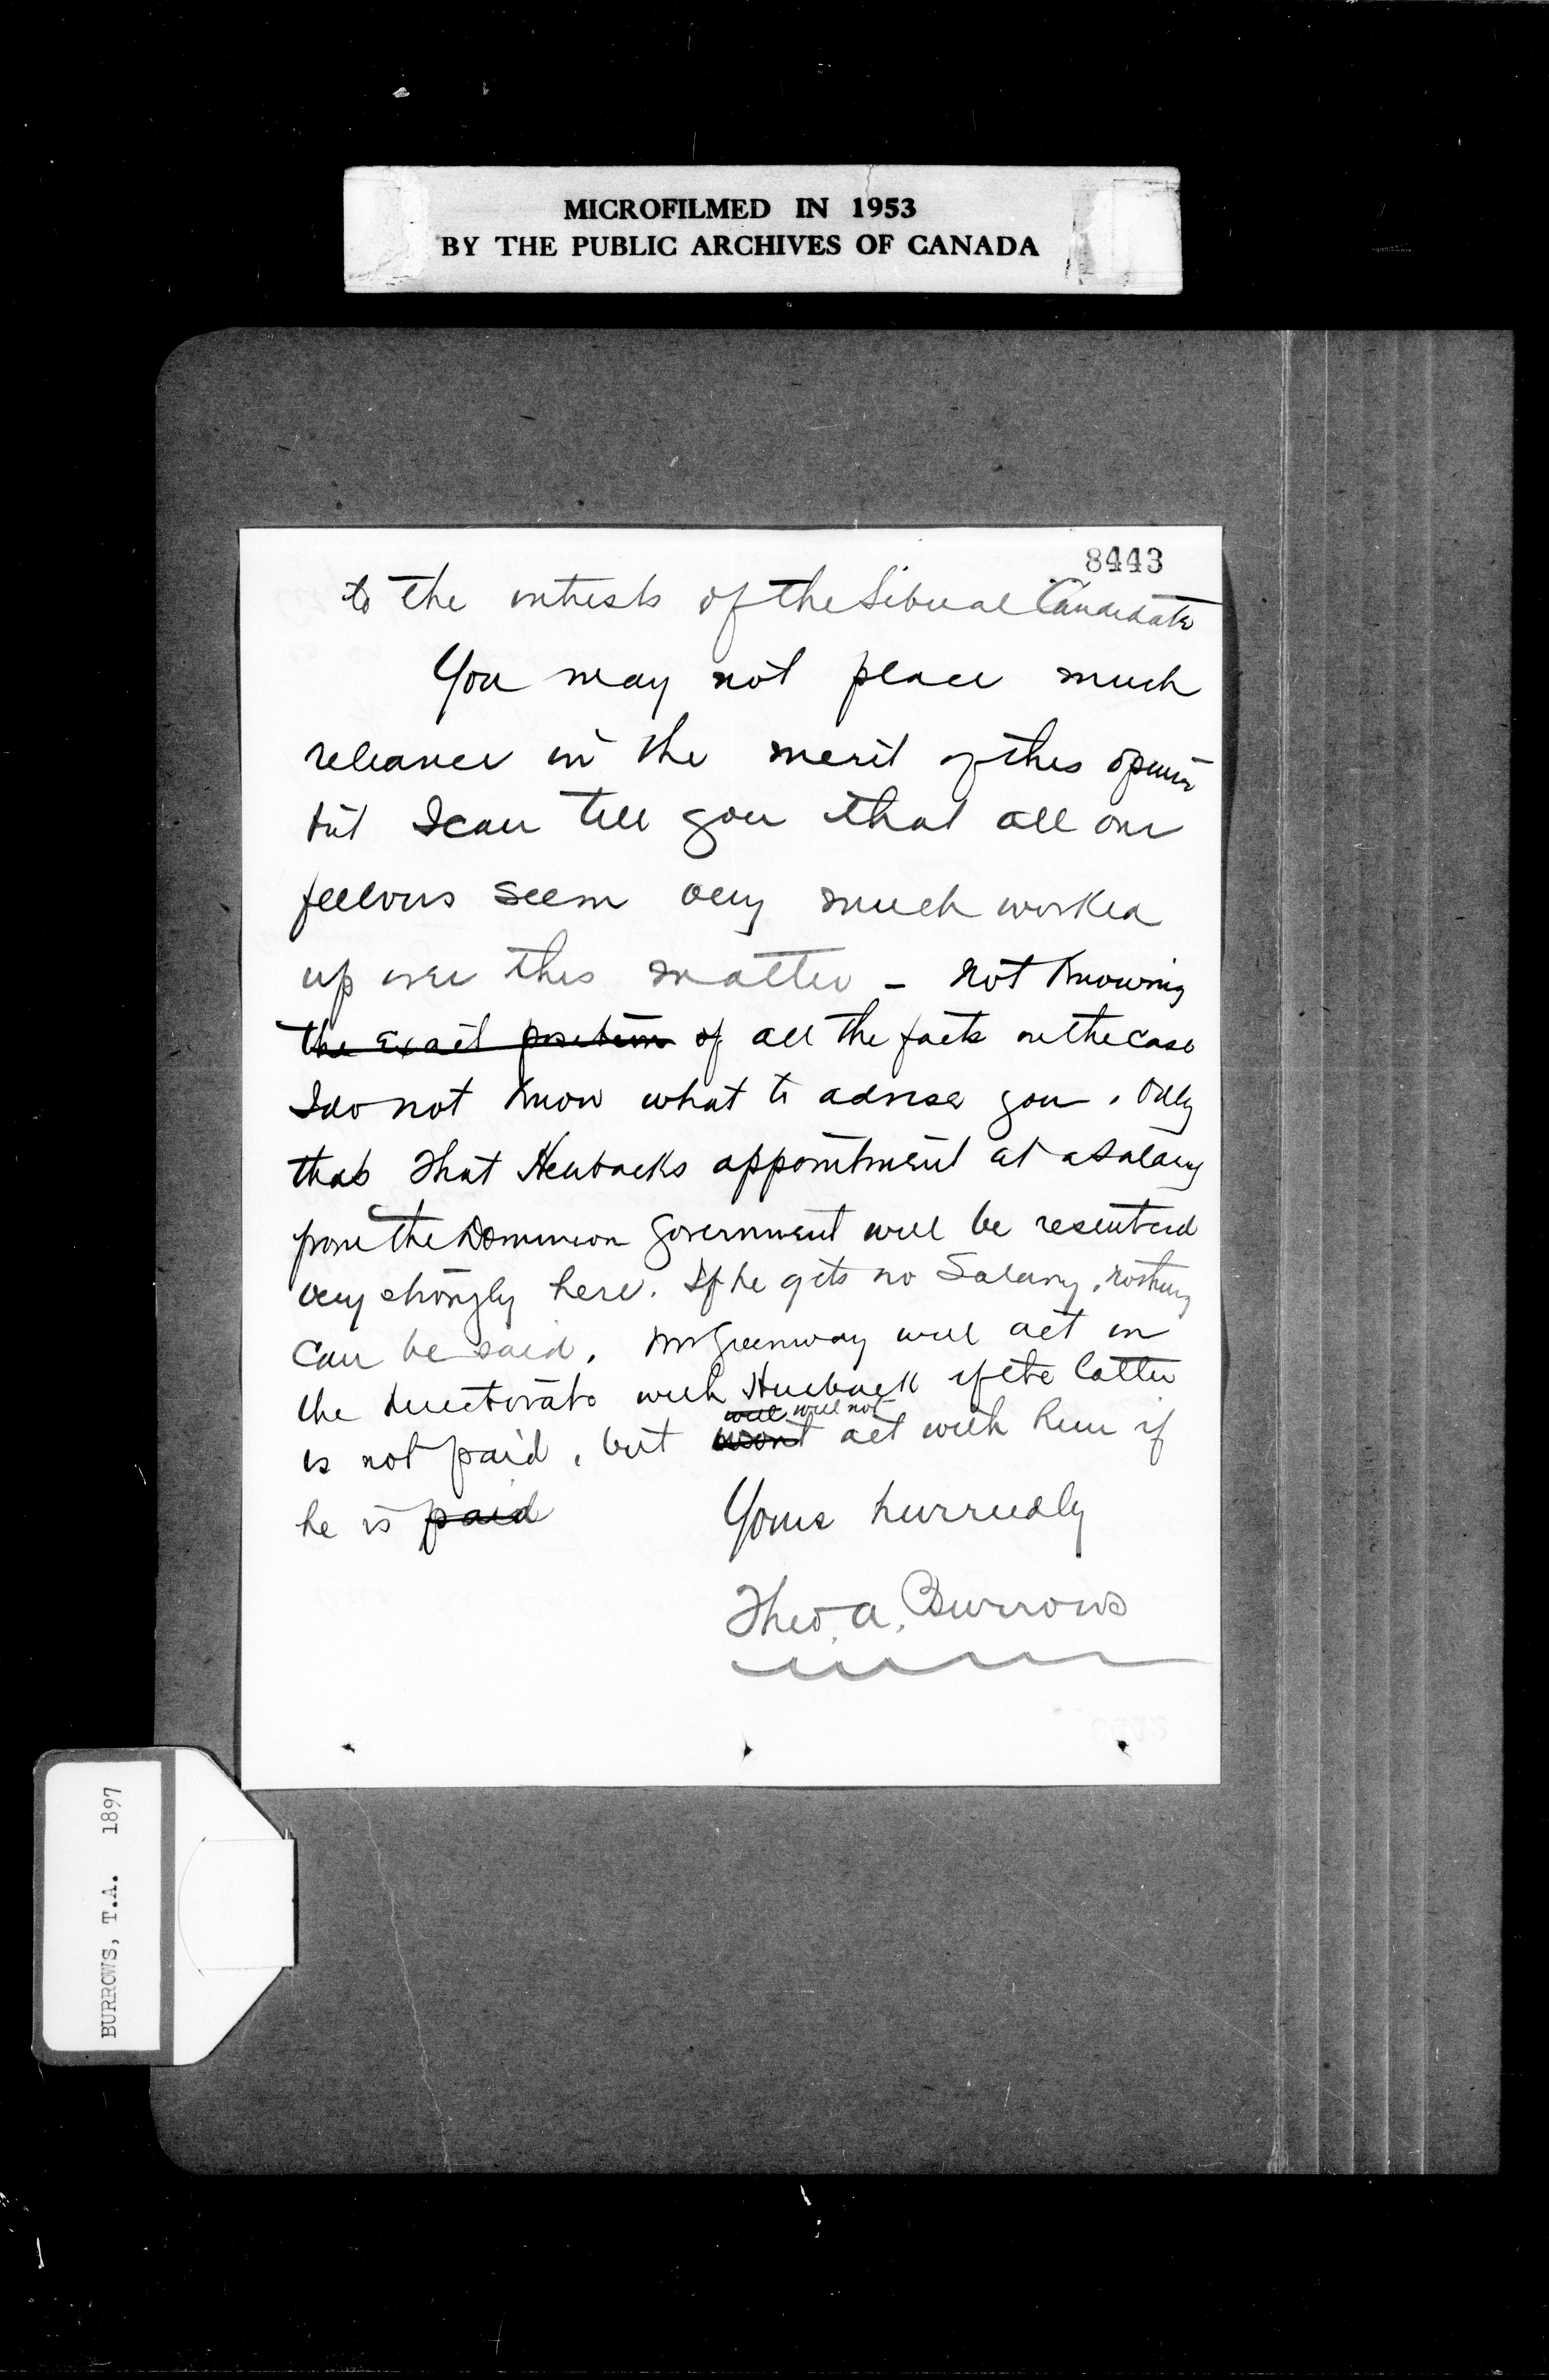 MICROFILMED IN 1953
BY THE PUBLIC ARCHIVES OF CANADA
8443
to the intrests of the Liberal Candidate
You may not place much
reliance in the merit of this opinion
but I can tell you that all our
fellows seem very much worked
up over this matter - not knowing
the exact position of all the facts on the case
I do not know what to advise you. Only
that Heubacks appointment at a salary
from the Dominion Government will be resented
very strongly here. If he gets no Salary, nothing
can be said. Mr Greenway will act on
the directorate with Heuback if the latter
will will not
is not paid, but wont act with him if
he is paid
Yours hurriedly
Theo. A. Burrows
BURROWS, T.A. 1897